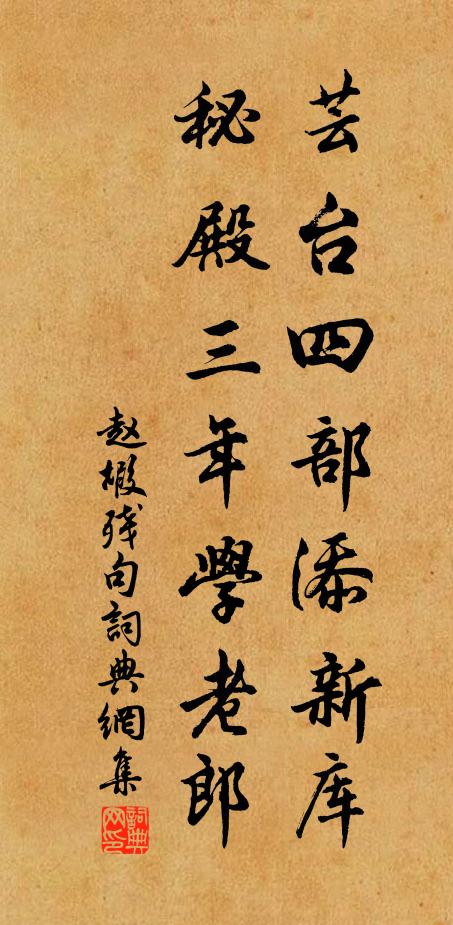 芸台四部添新库
秘殿三年學老郎
赵嘏残句詞典網集
詞典网印